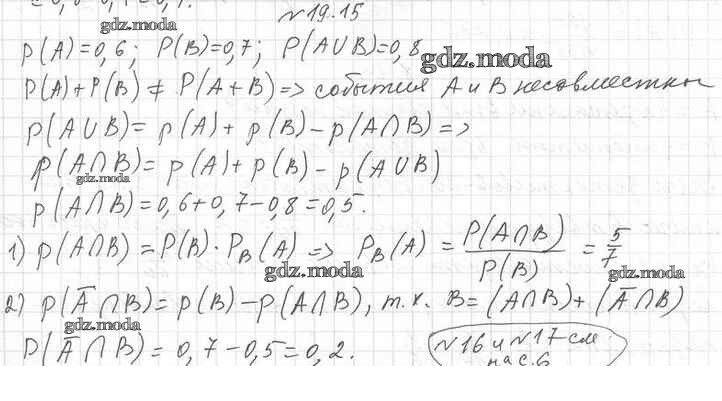 №19.15
gdz.moda
P(A)=0,6; P(B)=0,7; P(A∪B)=0,8
gdz.moda
P(A)+P(B)≠P(A+B)=> события A и B несовместны
P(A∪B)=p(A)+p(B)-p(A∩B)=>
p(A∩B)=p(A)+p(B)-p(A∪B)
gdz.moda
p(A∩B)=0,6+0,7-0,8=0,5.
1) p(A∩B)=P(B)·P_B(A)=> P_B(A)=P(A∩B)/P(B)=5/7
gdz.moda
gdz.moda
2) p(Ā∩B)=p(B)-p(A∩B), т.к. B=(A∩B)+(Ā∩B)
gdz.moda
P(Ā∩B)=0,7-0,5=0,2.
№16 и №17 см
на с.6